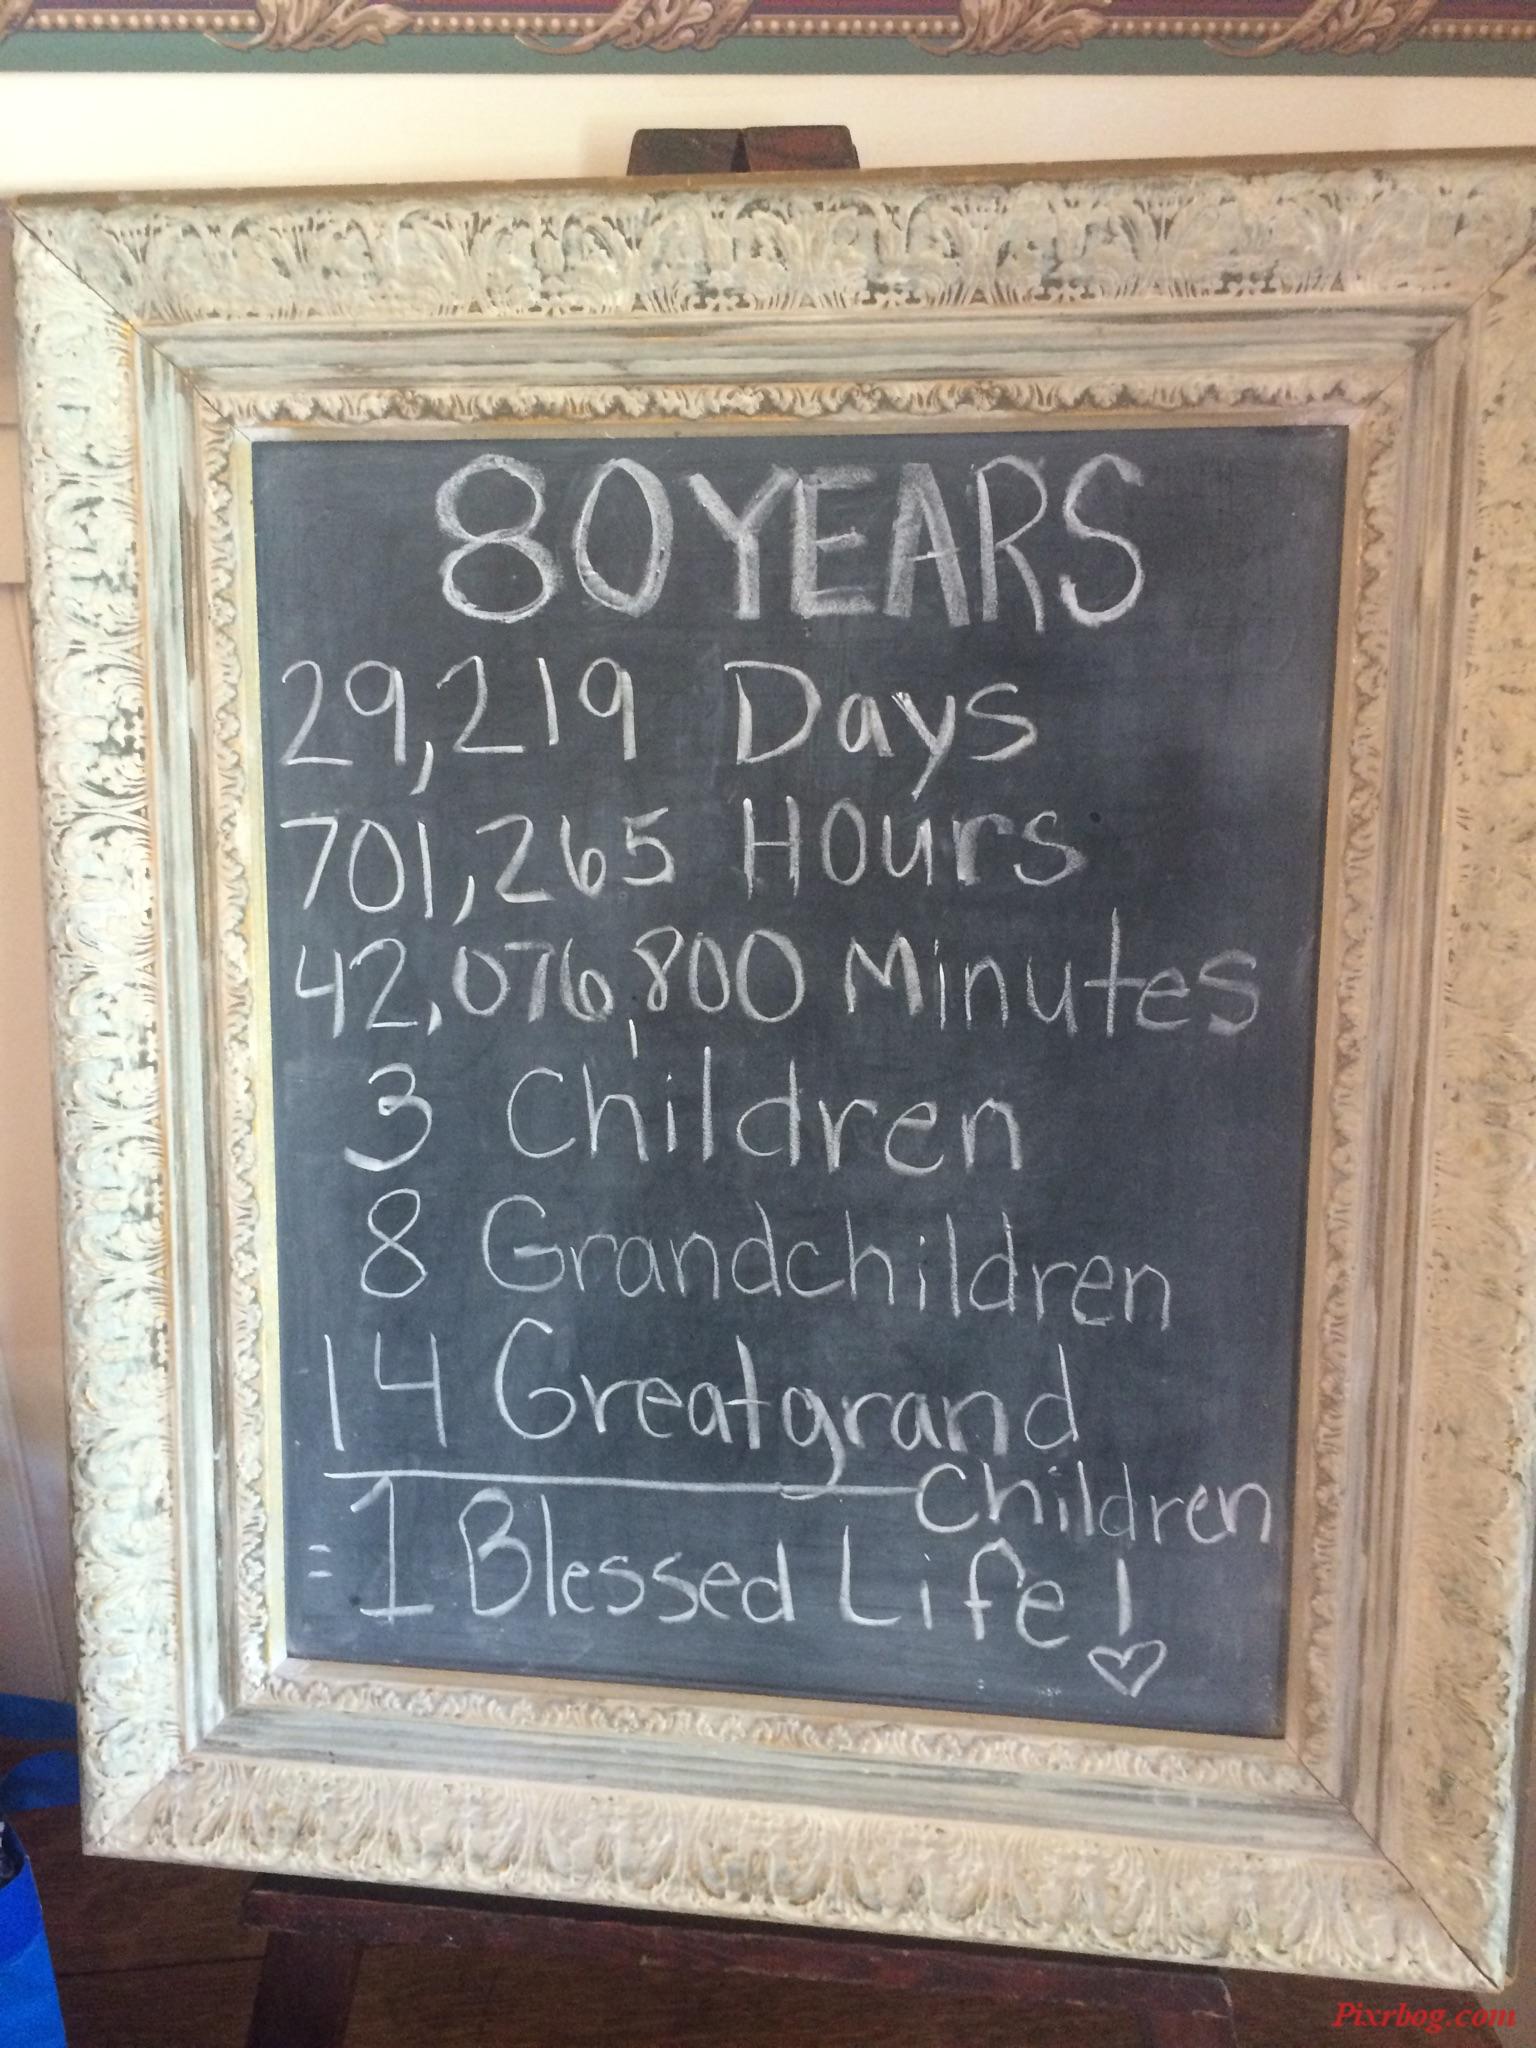 80 YEARS
29,219 Days
701,265 Hours
42,076,800 Minutes
3 Children
8 Grandchildren
14 Greatgrand
Children
= 1 Blessed Life!
Pixrbog.com